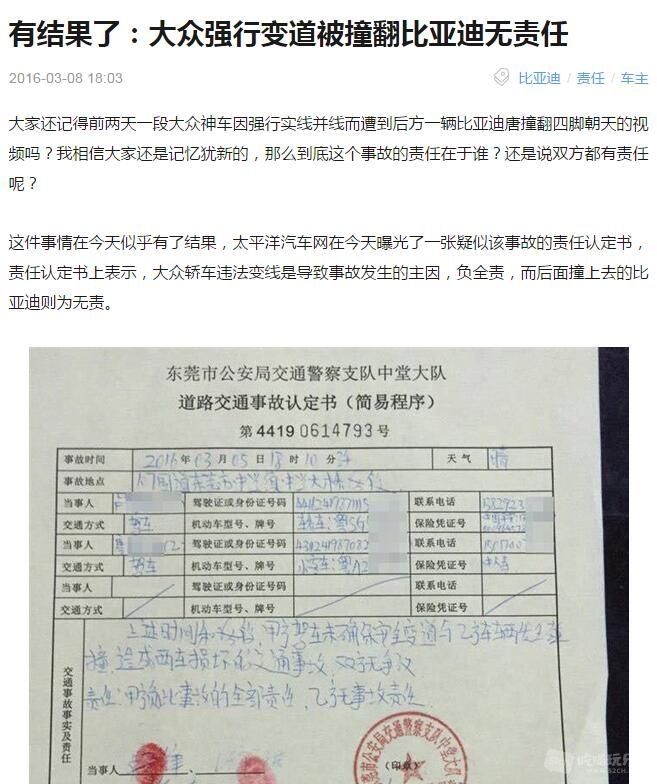 有结果了：大众强行变道被撞翻比亚迪无责任
2016-03-08 18:03
比亚迪 / 责任 / 车主
大家还记得前两天一段大众神车因强行实线并线而遭到后方一辆比亚迪唐撞翻四脚朝天的视
频吗？我相信大家还是记忆犹新的，那么到底这个事故的责任在于谁？还是说双方都有责任
呢？
这件事情在今天似乎有了结果，太平洋汽车网在今天曝光了一张疑似该事故的责任认定书，
责任认定书上表示，大众轿车违法变线是导致事故发生的主因，负全责，而后面撞上去的比
亚迪则为无责。
东莞市公安局交通警察支队中堂大队
道路交通事故认定书（简易程序）
第 4419 0614793 号
事故时间 2016 年 03 月 05 日 18 时 10 分 天气 晴
事故地点
当事人 驾驶证或身份证号码 联系电话
交通方式 驾车 机动车型号、牌号 保险凭证号
当事人 驾驶证或身份证号码 联系电话
交通方式 驾车 机动车型号、牌号 保险凭证号
当事人 驾驶证或身份证号码 联系电话
交通方式 机动车型号、牌号 保险凭证号
交通事故事实及责任
上述时间 甲方驾车未确保安全变道与乙方车辆发生碰
撞，造成两车损坏的交通事故，双方无争议
责任：甲方负此事故的全部责任，乙方无事故责任.
当事人
（印章）
东莞市公安局交通警察支队中堂大队